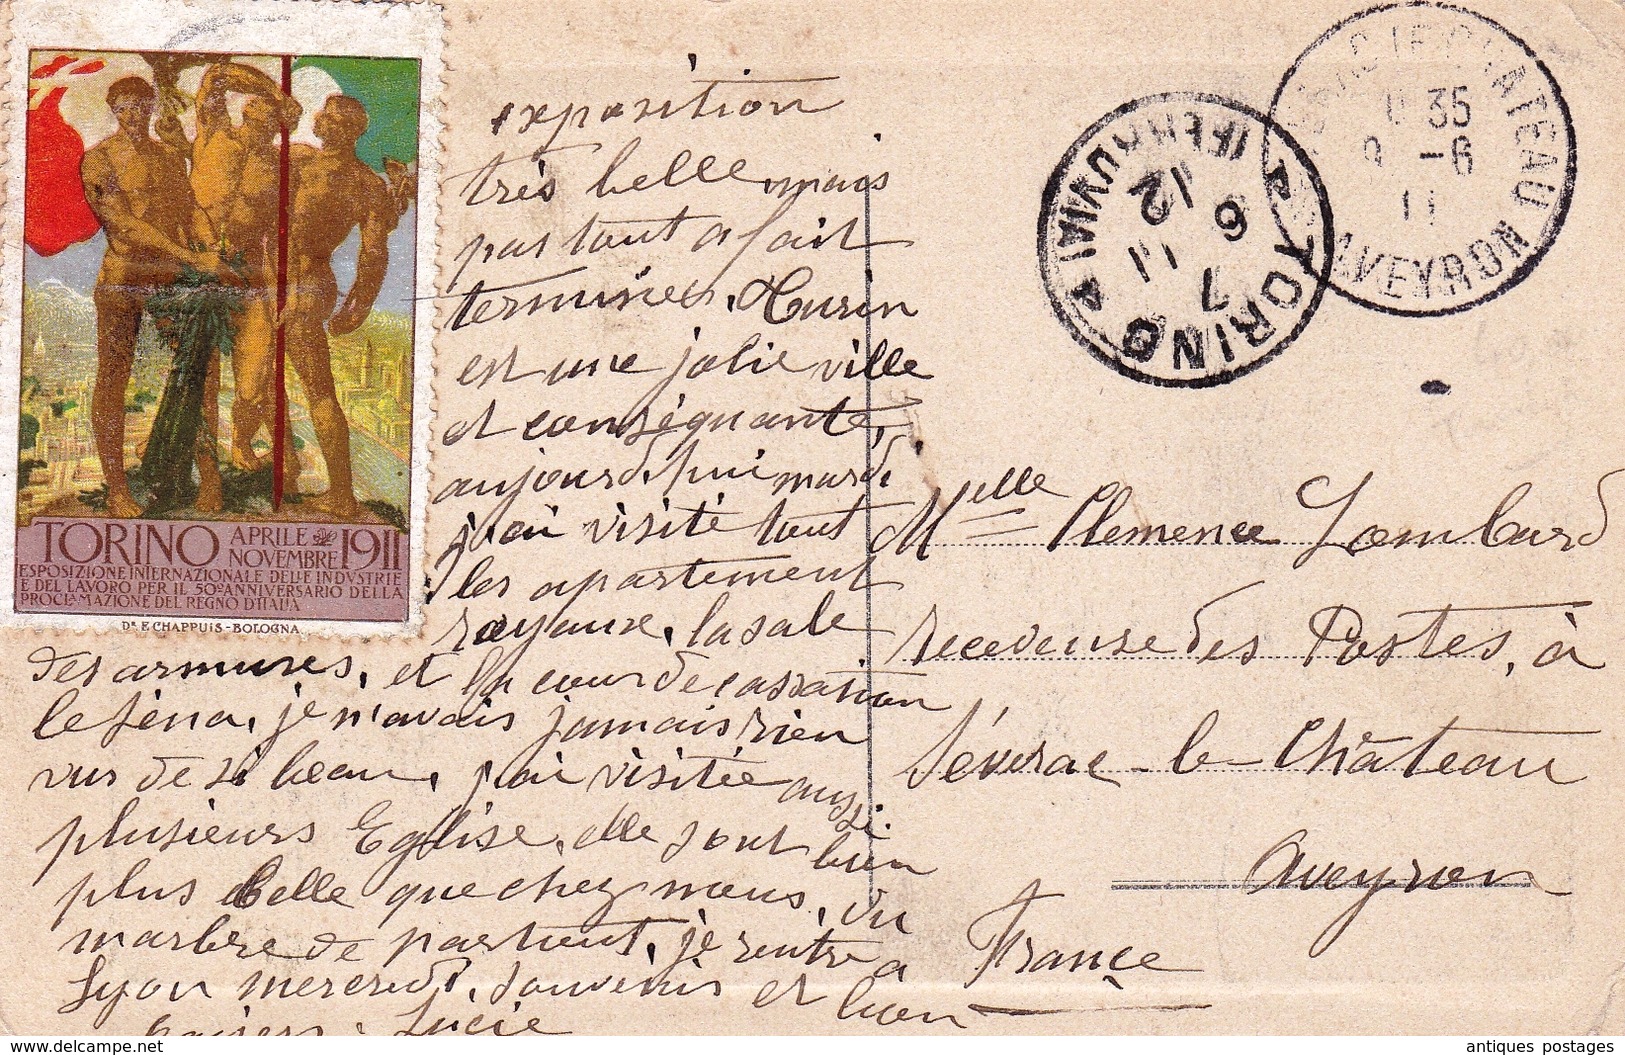 exposition
très belle mais
pas tout a fait
terminée. Turin
est une jolie ville
et conséquante,
aujourd'hui mardi
j'ai visité tout
les apartement
royaux, la sale
des armures, et la cour de cassation
le Séna, je n'avais jamais rien
vus de si beau, j'ai visitée aussi
plusieurs Eglise, elle sont bien
plus belle que chez nous, du
marbre de partout, je rentre a
Lyon mercredi, souvenirs et bien
baisers. Lucie
TORINO APRILE NOVEMBRE 1911
ESPOSIZIONE INTERNAZIONALE DELLE INDVSTRIE
E DEL LAVORO PER IL 50º ANNIVERSARIO DELLA
PROCLAMAZIONE DEL REGNO D'ITALIA
Dr. E. CHAPPUIS - BOLOGNA
TORINO
7
6 11
12
35
-6
11
CHATEAU
AVEYRON
Melle Clemence Lombard
receveuse des Postes, à
Séverac-le-Château
Aveyron
France
antiques postages